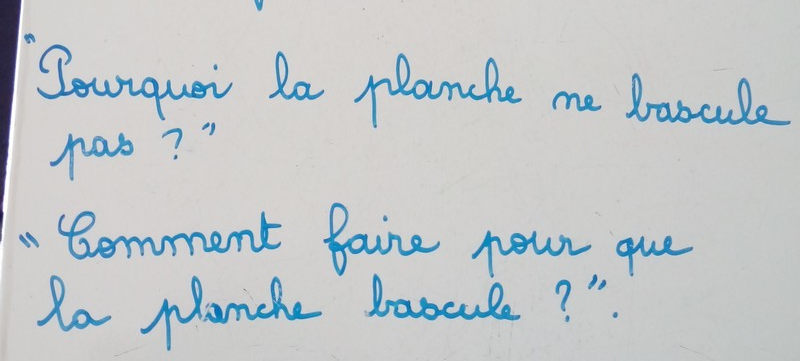 "Pourquoi la planche ne bascule
pas ?"
"Comment faire pour que
la planche bascule ?".